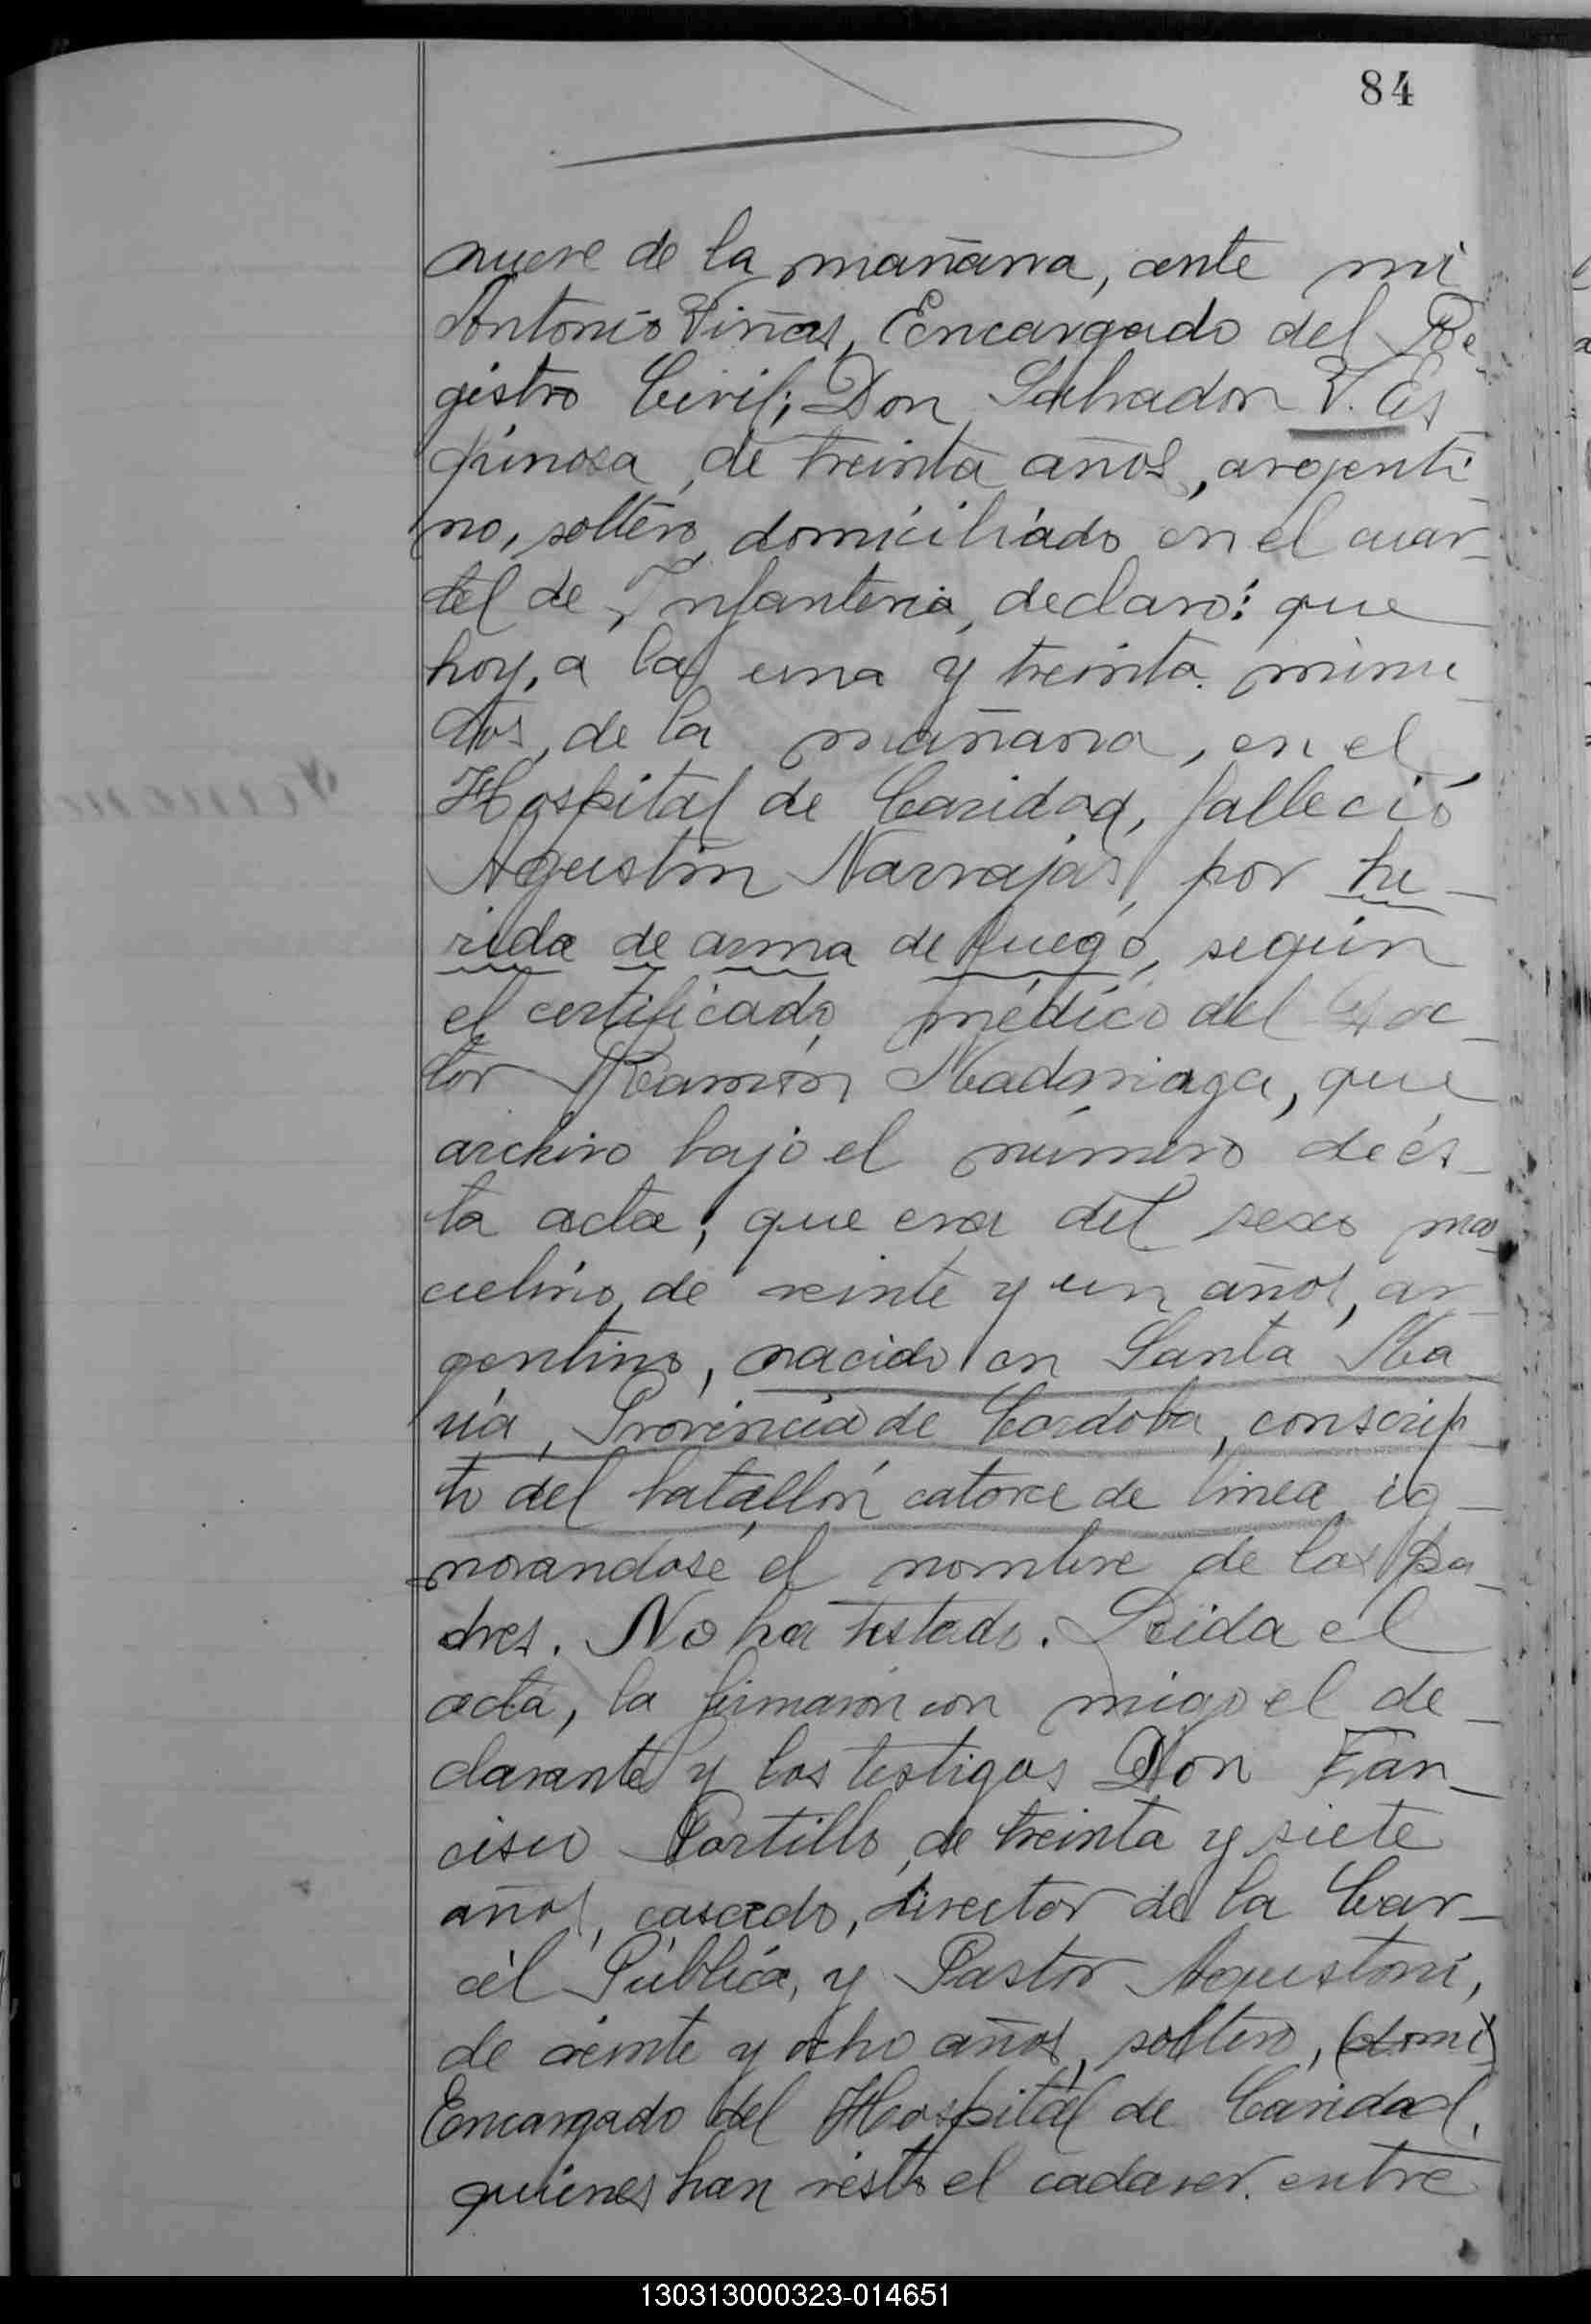 84
nueve de la mañana, ante mi
Antonio Viñas, Encargado del Re
gistro Civil; Don Salvador V. Es
pinosa, de treinta años, argenti
no, soltero, domiciliado en el cuar-
tel de Infanteria, declaró: que
hoy, a las una y treinta minu
tos, de la mañana, en el
Hospital de Caridad, falleció
Agustin Narvajas, por he-
rida de arma de fuego, según
el certificado médico del Doc-
tor Ramón Madariaga, que
archivo bajo el número de és-
ta acta; que era del sexo mas
culino, de veinte y un años, ar-
gentino, nacido en Santa Ma-
ria, Provincia de Cordoba, conscrip-
to del batallón catorce de linea ig-
norandose el nombre de los pa-
dres. No ha testado. Leida el
acta, la firmaron con migo el de-
clarante y los testigos Don Fran-
cisco Portillo, de treinta y siete
años, casado, director de la Car-
cel Pública, y Pastor Agustoni,
de veinte y ocho años, soltero, (domi)
Encargado del Hospital de Caridad,
quienes han visto el cadaver. entre
130313000323-014651